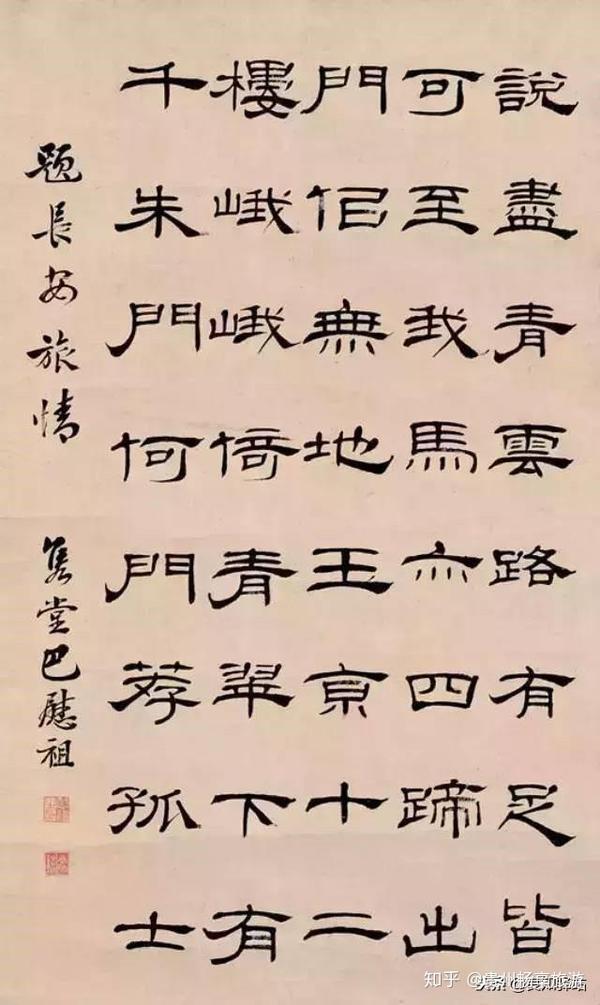 說盡青雲路有足皆
可至我馬亦四蹄出
門似無地玉京十二
樓峨峨倚青翠下有
千朱門何門荐孤士
題長安旅情
雋堂巴慰祖
知乎 @贵州畅享旅游
头条